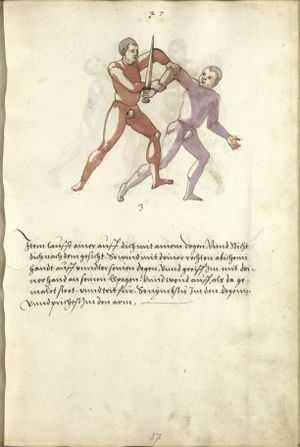 27
3
Item laufft ainer auff dich mit ainem degen. Vnnd sticht
dich nach dem gesicht. So wind mit deiner rechten
handt auff vnndter seinen degen. Vnnd greiff Im mit dei-
ner hand an seinen Vnnd wind auff als da ge-
malet stet. vnnd trit für. So nymbstu Im den degenn.
Vnnd prichest Im den arm.
17